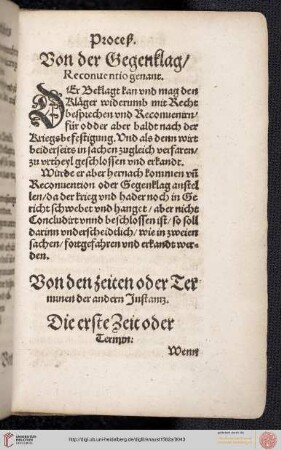 Proceß.
Von der Gegenklag/
Reconuentio genant.
DEr Beklagt kan vnd mag den
Kläger widerumb mit Recht
besprechen vnd Reconuenirn/
für odder aber baldt nach der
Kriegsbefestigung. Vnd als denn wirt
beiderseits in sachen zugleich verfaren/
zu vrtheyl geschlossen vnd erkandt.
Würde er aber hernach kommen vñ
Reconuention oder Gegenklag anstel
len/da der krieg vnd hader noch in Ge
richt schwebet vnd hanget/aber nicht
Concludirt vnnd beschlossen ist/so soll
darinn vnderscheidtlich/wie in zweien
sachen/fortgefahren vnd erkandt wer-
den.
Von den zeiten oder Ter
minen der andern Instantz.
Die erste Zeit oder
Termin.
Wenn
UNIVERSITÄTS-
BIBLIOTHEK
HEIDELBERG